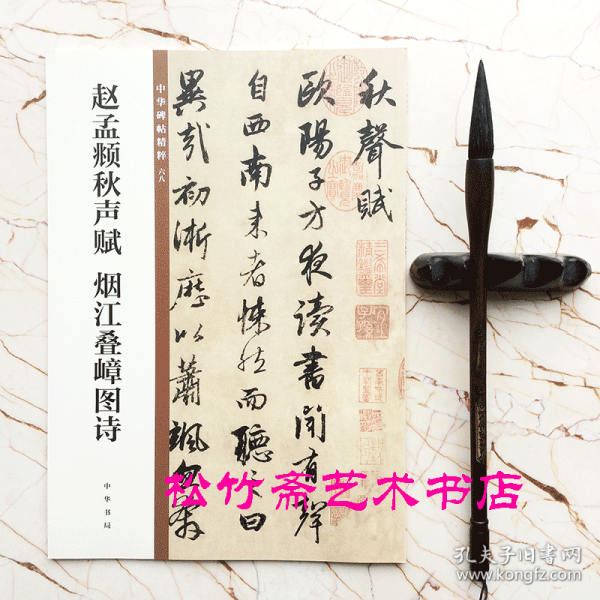 赵孟頫秋声赋 烟江叠嶂图诗
中华书局
中华碑帖精粹 六八
秋聲賦
歐陽子方夜讀書聞有聲
自西南来者悚然而聽之曰
異哉初淅歷以蕭颯忽奔
三希堂精鑑璽
宜子孫
松竹斋艺术书店
孔夫子旧书网
www.kongfz.com